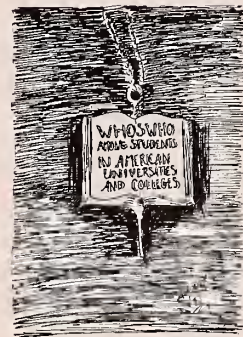 WHO'S WHO
AMONG STUDENTS
IN AMERICAN
UNIVERSITIES
AND COLLEGES